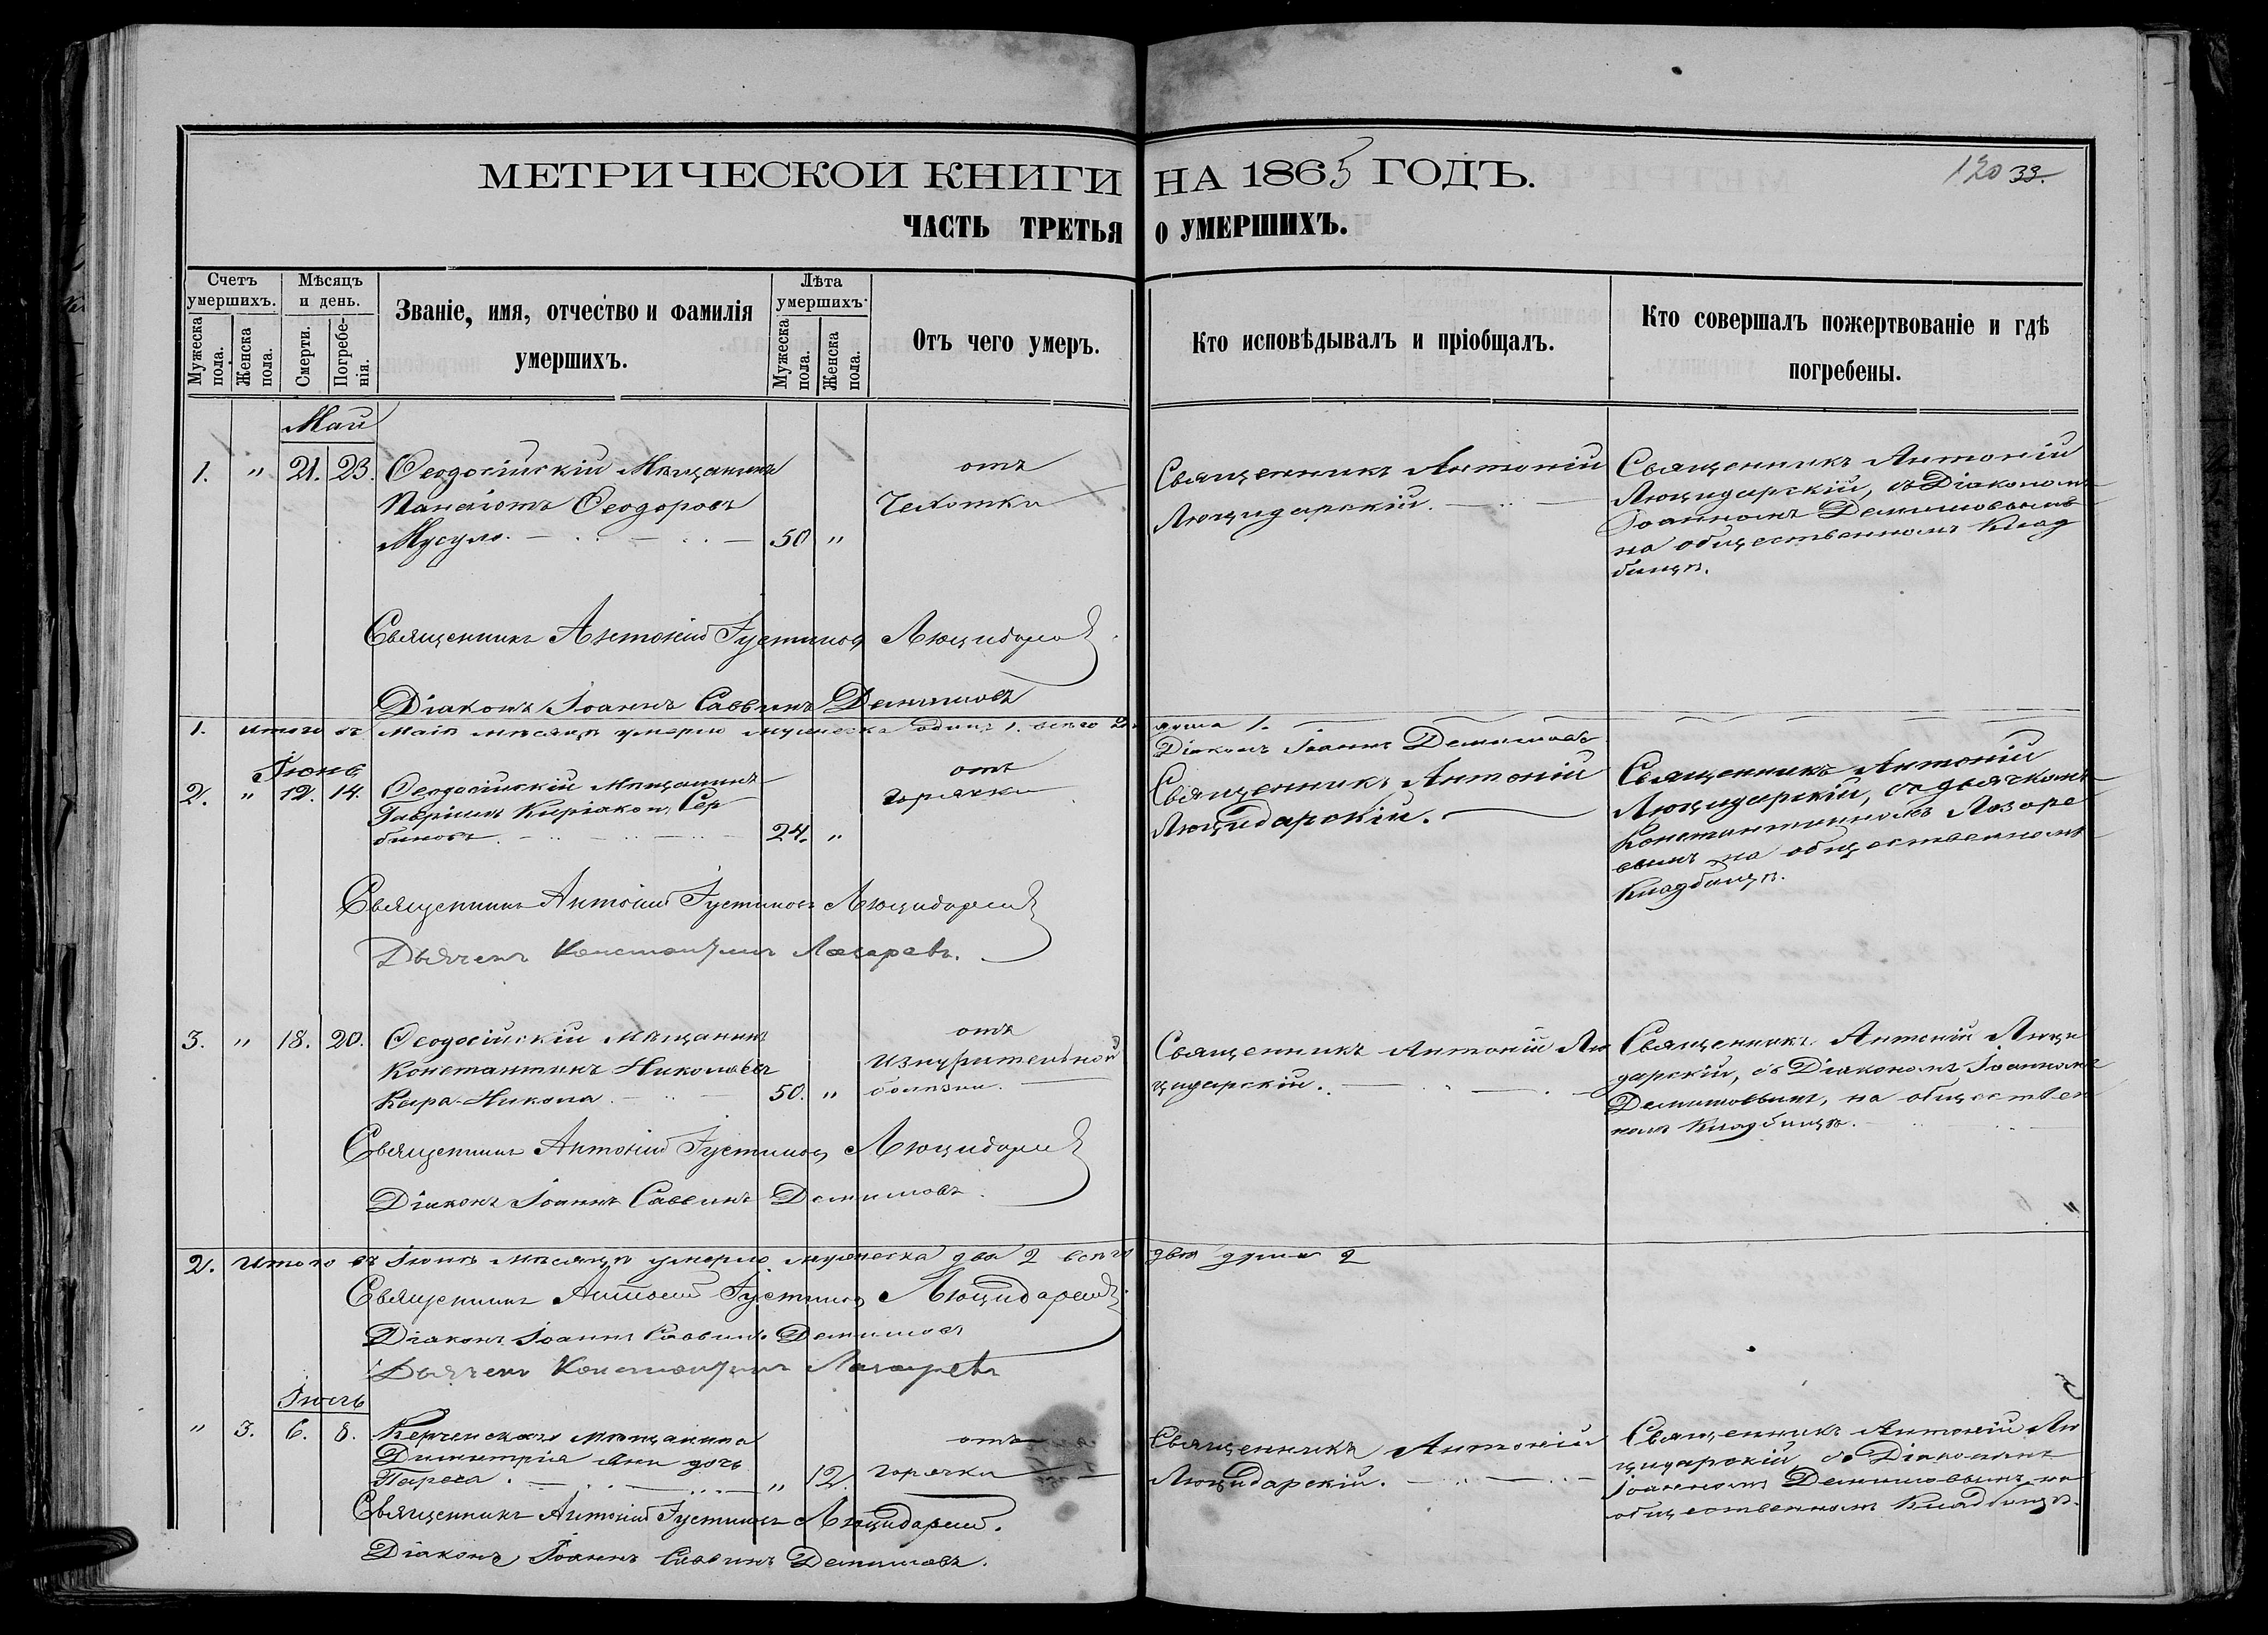 МЕТРИЧЕСКОЙ КНИГИ НА 1865 ГОДЪ.
120 33.
ЧАСТЬ ТРЕТЬЯ О УМЕРШИХЪ.
Счетъ умершихъ.
Мужеска пола.
Женска пола.
Мѣсяцъ и день.
Смерти.
Погребенія.
Званіе, имя, отчество и фамилія
умершихъ.
Лѣта умершихъ.
Мужеска пола.
Женска пола.
Отъ чего умеръ.
Кто исповѣдывалъ и пріобщалъ.
Кто совершалъ пожертвованіе и гдѣ
погребены.
Май
1. " 21. 23. Ѳеодосійскій Мѣщанинъ
Панаіотъ Ѳеодоровъ
Мусуло. 50 "
отъ
Чахотки
Священникъ Антоній
Люцидарскій.
Священникъ Антоній
Люцидарскій, съ Діакономъ
Іоанномъ Демишовымъ
на общественномъ Клад
бищѣ.
Священникъ Антоній Іустиновъ
Діаконъ Іоаннъ Саввинъ Демишовъ
1. Итого въ Маѣ мѣсяцѣ умерло мужеска одинъ 1. всего 1.
Діаконъ Іоаннъ Демишовъ
Іюнь
2. " 12. 14. Ѳеодосійскій Мѣщанинъ
Гавріилъ Киріаковъ Сер
биновъ 24. "
отъ
горячки
Священникъ Антоній
Люцидарскій.
Священникъ Антоній
Люцидарскій, съ дьячкомъ
Константиномъ Лазаре
вымъ на общественномъ
Кладбищѣ.
Священникъ Антоній Іустиновъ
Дьячекъ Константинъ Лазаревъ.
3. " 18. 20. Ѳеодосійскій Мѣщанинъ
Константинъ Николаевъ
Кара-Никола 50. "
отъ
изнурительной
болѣзни.
Священникъ Антоній Лю
цидарскій.
Священникъ Антоній Люци
дарскій, съ Діакономъ Іоанномъ
Демишовымъ, на обществен
номъ Кладбищѣ.
Священникъ Антоній Іустиновъ
Діаконъ Іоаннъ Саввинъ Демишовъ.
2. Итого въ Іюнѣ мѣсяцѣ умерло мужеска два 2 всего двѣ души 2
Священникъ Антоній Іустиновъ
Діаконъ Іоаннъ Саввинъ Демишовъ
Дьячекъ Константинъ Лазаревъ
Іюль
" 3. 6. 8. Керченскаго мѣщанина
Димитрія дочь
" 12.
отъ
горячки
Священникъ Антоній
Люцидарскій.
Священникъ Антоній Лю
цидарскій съ Діакономъ
Іоанномъ Демишовымъ на
общественномъ Кладбищѣ.
Священникъ Антоній Іустиновъ
Діаконъ Іоаннъ Саввинъ Демишовъ.